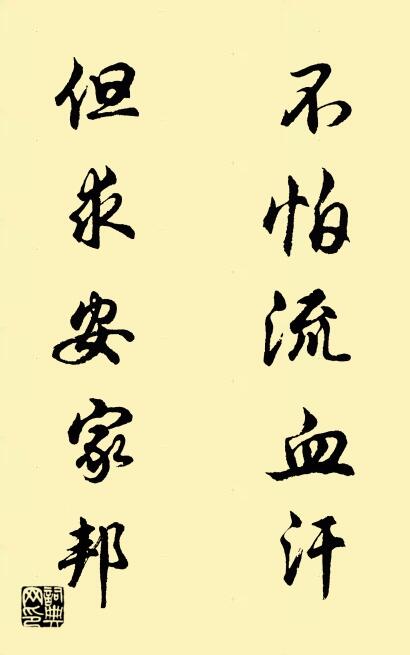 不怕流血汗
但求安家邦
詞典网印